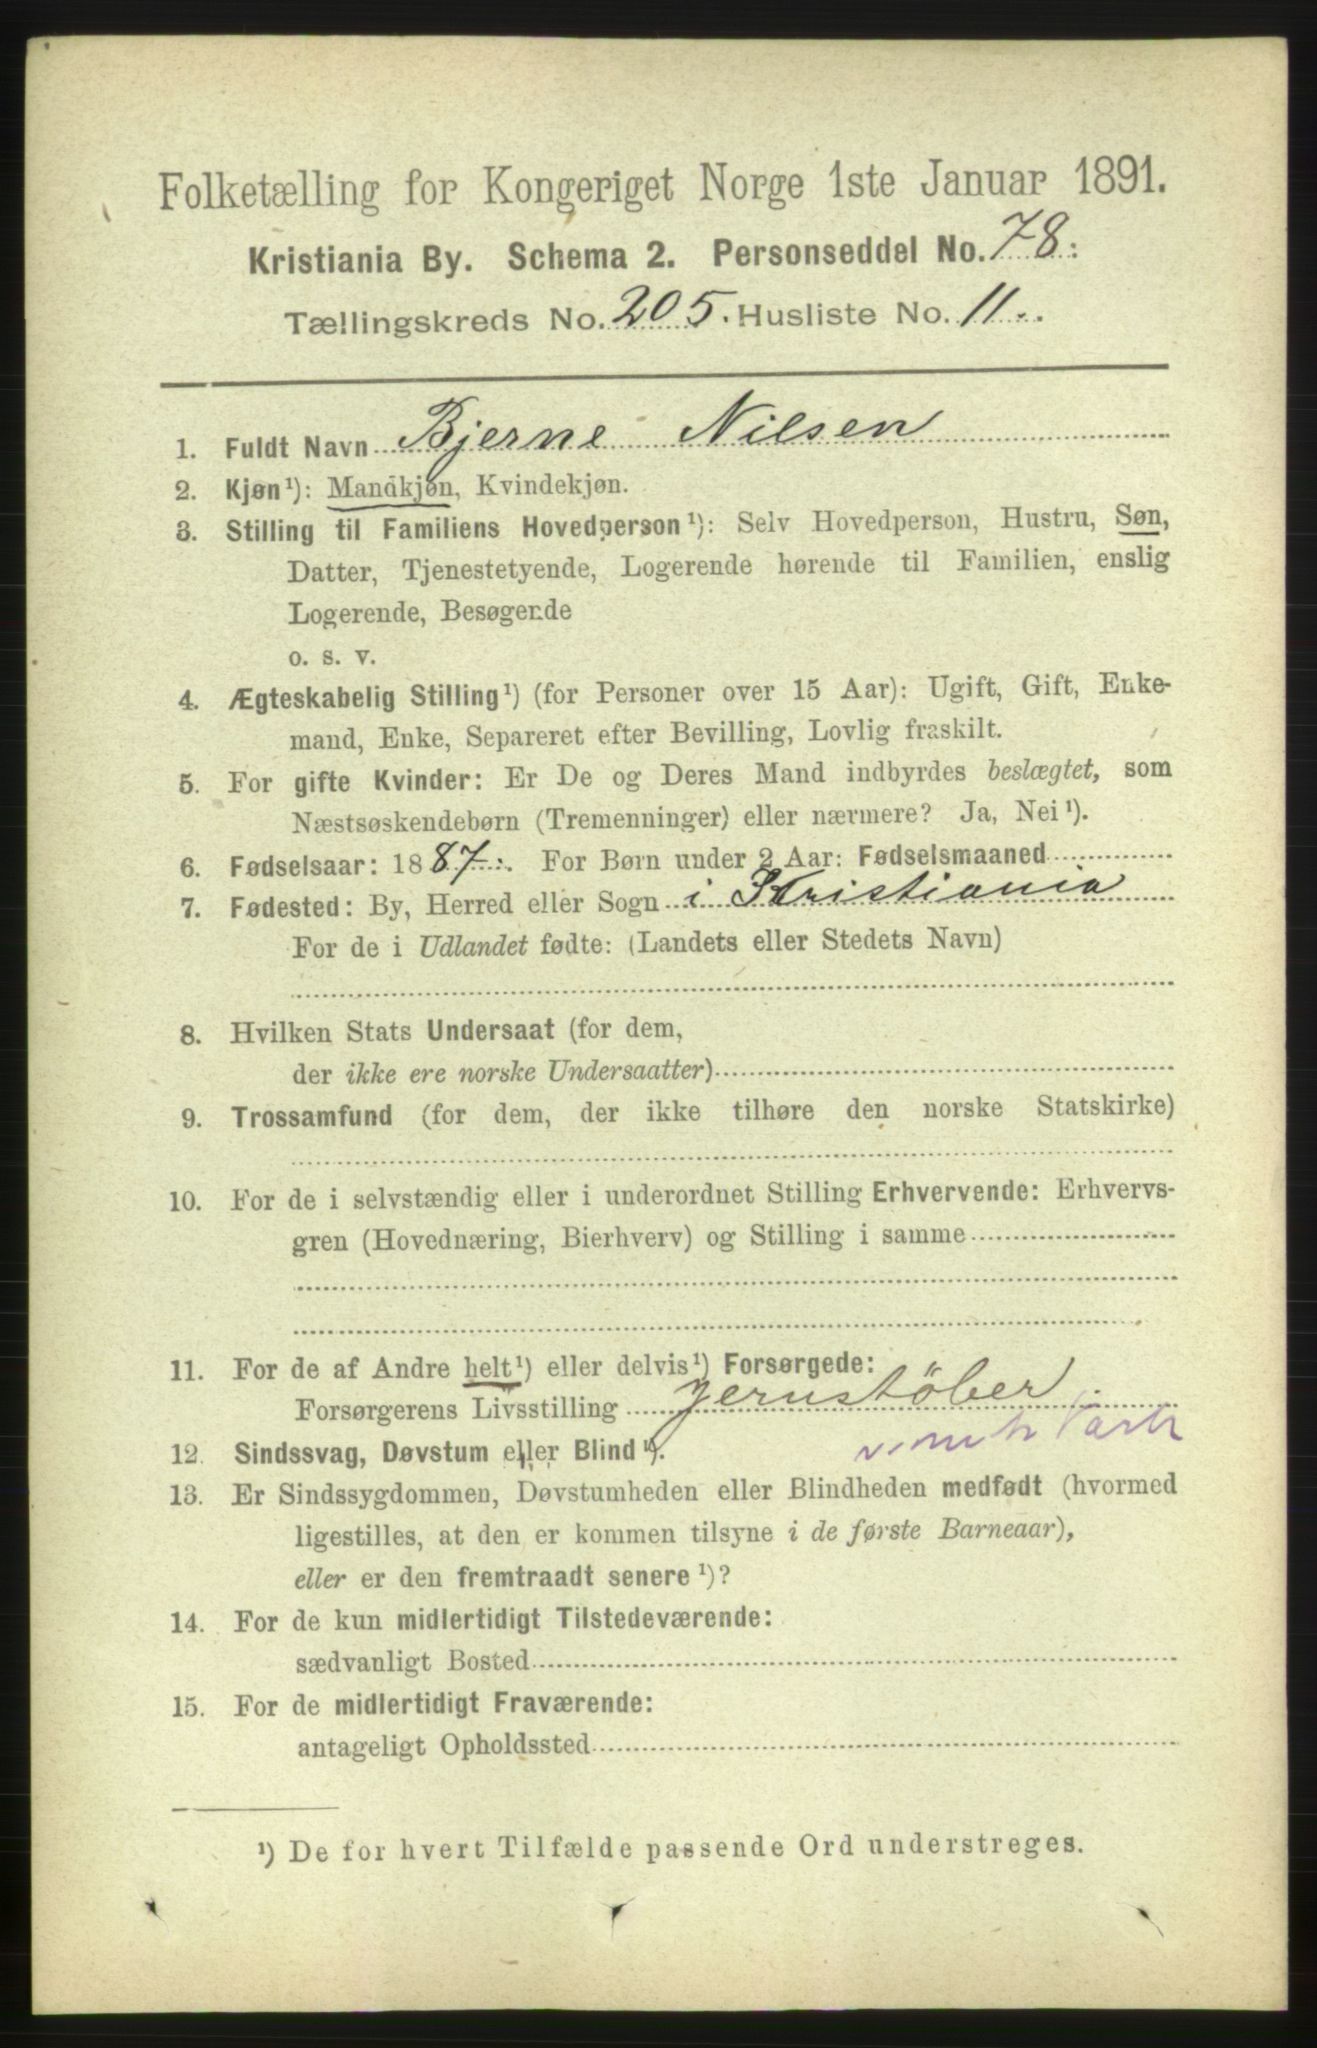 Folketælling for Kongeriget Norge 1ste Januar 1891.
Kristiania By. Schema 2. Personseddel No. 78.
Tællingskreds No. 205. Husliste No. 11.
1. Fuldt Navn Bjerne Nilsen
2. Kjøn¹): Mandkjøn, Kvindekjøn.
3. Stilling til Familiens Hovedperson¹): Selv Hovedperson, Hustru, Søn,
Datter, Tjenestetyende, Logerende hørende til Familien, enslig
Logerende, Besøgende
o. s. v.
4. Ægteskabelig Stilling¹) (for Personer over 15 Aar): Ugift, Gift, Enke-
mand, Enke, Separeret efter Bevilling, Lovlig fraskilt.
5. For gifte Kvinder: Er De og Deres Mand indbyrdes beslægtet, som
Næstsøskendebørn (Tremenninger) eller nærmere? Ja, Nei¹).
6. Fødselsaar: 1887. For Børn under 2 Aar: Fødselsmaaned
7. Fødested: By, Herred eller Sogn i Kristiania
For de i Udlandet fødte: (Landets eller Stedets Navn)
8. Hvilken Stats Undersaat (for dem,
der ikke ere norske Undersaatter)
9. Trossamfund (for dem, der ikke tilhøre den norske Statskirke)
10. For de i selvstændig eller i underordnet Stilling Erhvervende: Erhvervs-
gren (Hovednæring, Bierhverv) og Stilling i samme
11. For de af Andre helt¹) eller delvis¹) Forsørgede:
Forsørgerens Livsstilling Jernstöber
12. Sindssvag, Døvstum eller Blind¹).
13. Er Sindssygdommen, Døvstumheden eller Blindheden medfødt (hvormed
ligestilles, at den er kommen tilsyne i de første Barneaar),
eller er den fremtraadt senere¹)?
14. For de kun midlertidigt Tilstedeværende:
sædvanligt Bosted
15. For de midlertidigt Fraværende:
antageligt Opholdssted
¹) De for hvert Tilfælde passende Ord understreges.